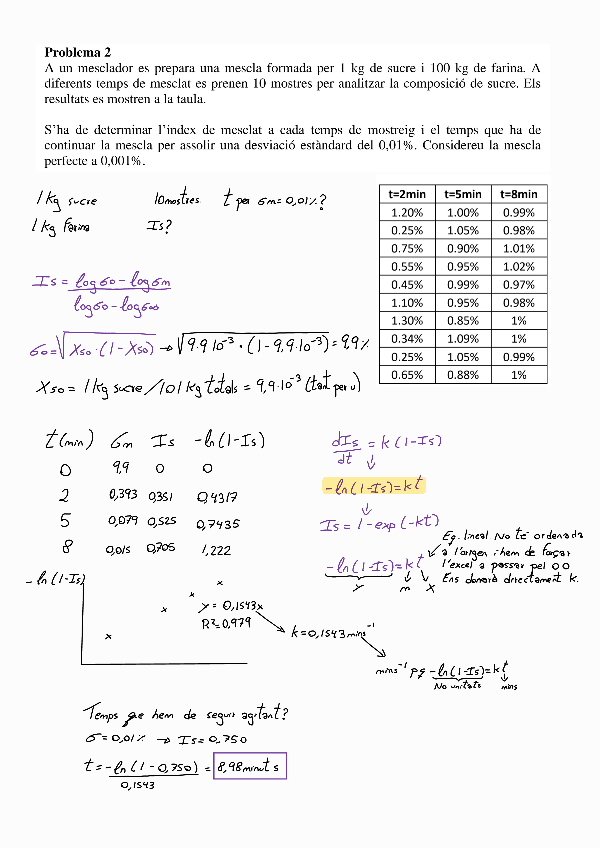 Problema 2
A un mesclador es prepara una mescla formada per 1 kg de sucre i 100 kg de farina. A
diferents temps de mesclat es prenen 10 mostres per analitzar la composició de sucre. Els
resultats es mostren a la taula.
S'ha de determinar l'índex de mesclat a cada temps de mostreig i el temps que ha de
continuar la mescla per assolir una desviació estàndard del 0,01%. Considereu la mescla
perfecte a 0,001%.
1 kg sucre 10 mostres t per σm = 0,01%?
1 kg farina Is?
t=2min t=5min t=8min
1.20% 1.00% 0.99%
0.25% 1.05% 0.98%
0.75% 0.90% 1.01%
0.55% 0.95% 1.02%
0.45% 0.99% 0.97%
1.10% 0.95% 0.98%
1.30% 0.85% 1%
0.34% 1.09% 1%
0.25% 1.05% 0.99%
0.65% 0.88% 1%
Is = log σ0 - log σm
log σ0 - log σ∞
σ0 = √Xso · (1 - Xso) → √9.9·10⁻³ · (1 - 9,9·10⁻³) = 9,9%
Xso = 1 kg sucre / 101 kg totals = 9,9·10⁻³ (tant per u)
t (min) σm Is -ln(1-Is)
0 9,9 0 0
2 0,393 0,351 0,4317
5 0,079 0,525 0,7435
8 0,015 0,705 1,222
dIs/dt = k (1-Is)
↓
-ln(1-Is) = kt
↓
Is = 1 - exp(-kt)
Eq. lineal. No té ordenada
a l'origen i hem de forçar
l'excel a passar pel 0 0
Ens donarà directament k.
-ln(1-Is) = kt
y m x
-ln(1-Is)
y = 0,1543x
R² = 0,979
k = 0,1543 mins⁻¹
mins⁻¹ pq -ln(1-Is) = kt
No unitats mins
Temps que hem de seguir agitant?
σ = 0,01% → Is = 0,750
t = -ln(1 - 0,750) = 8,98 minuts
0,1543